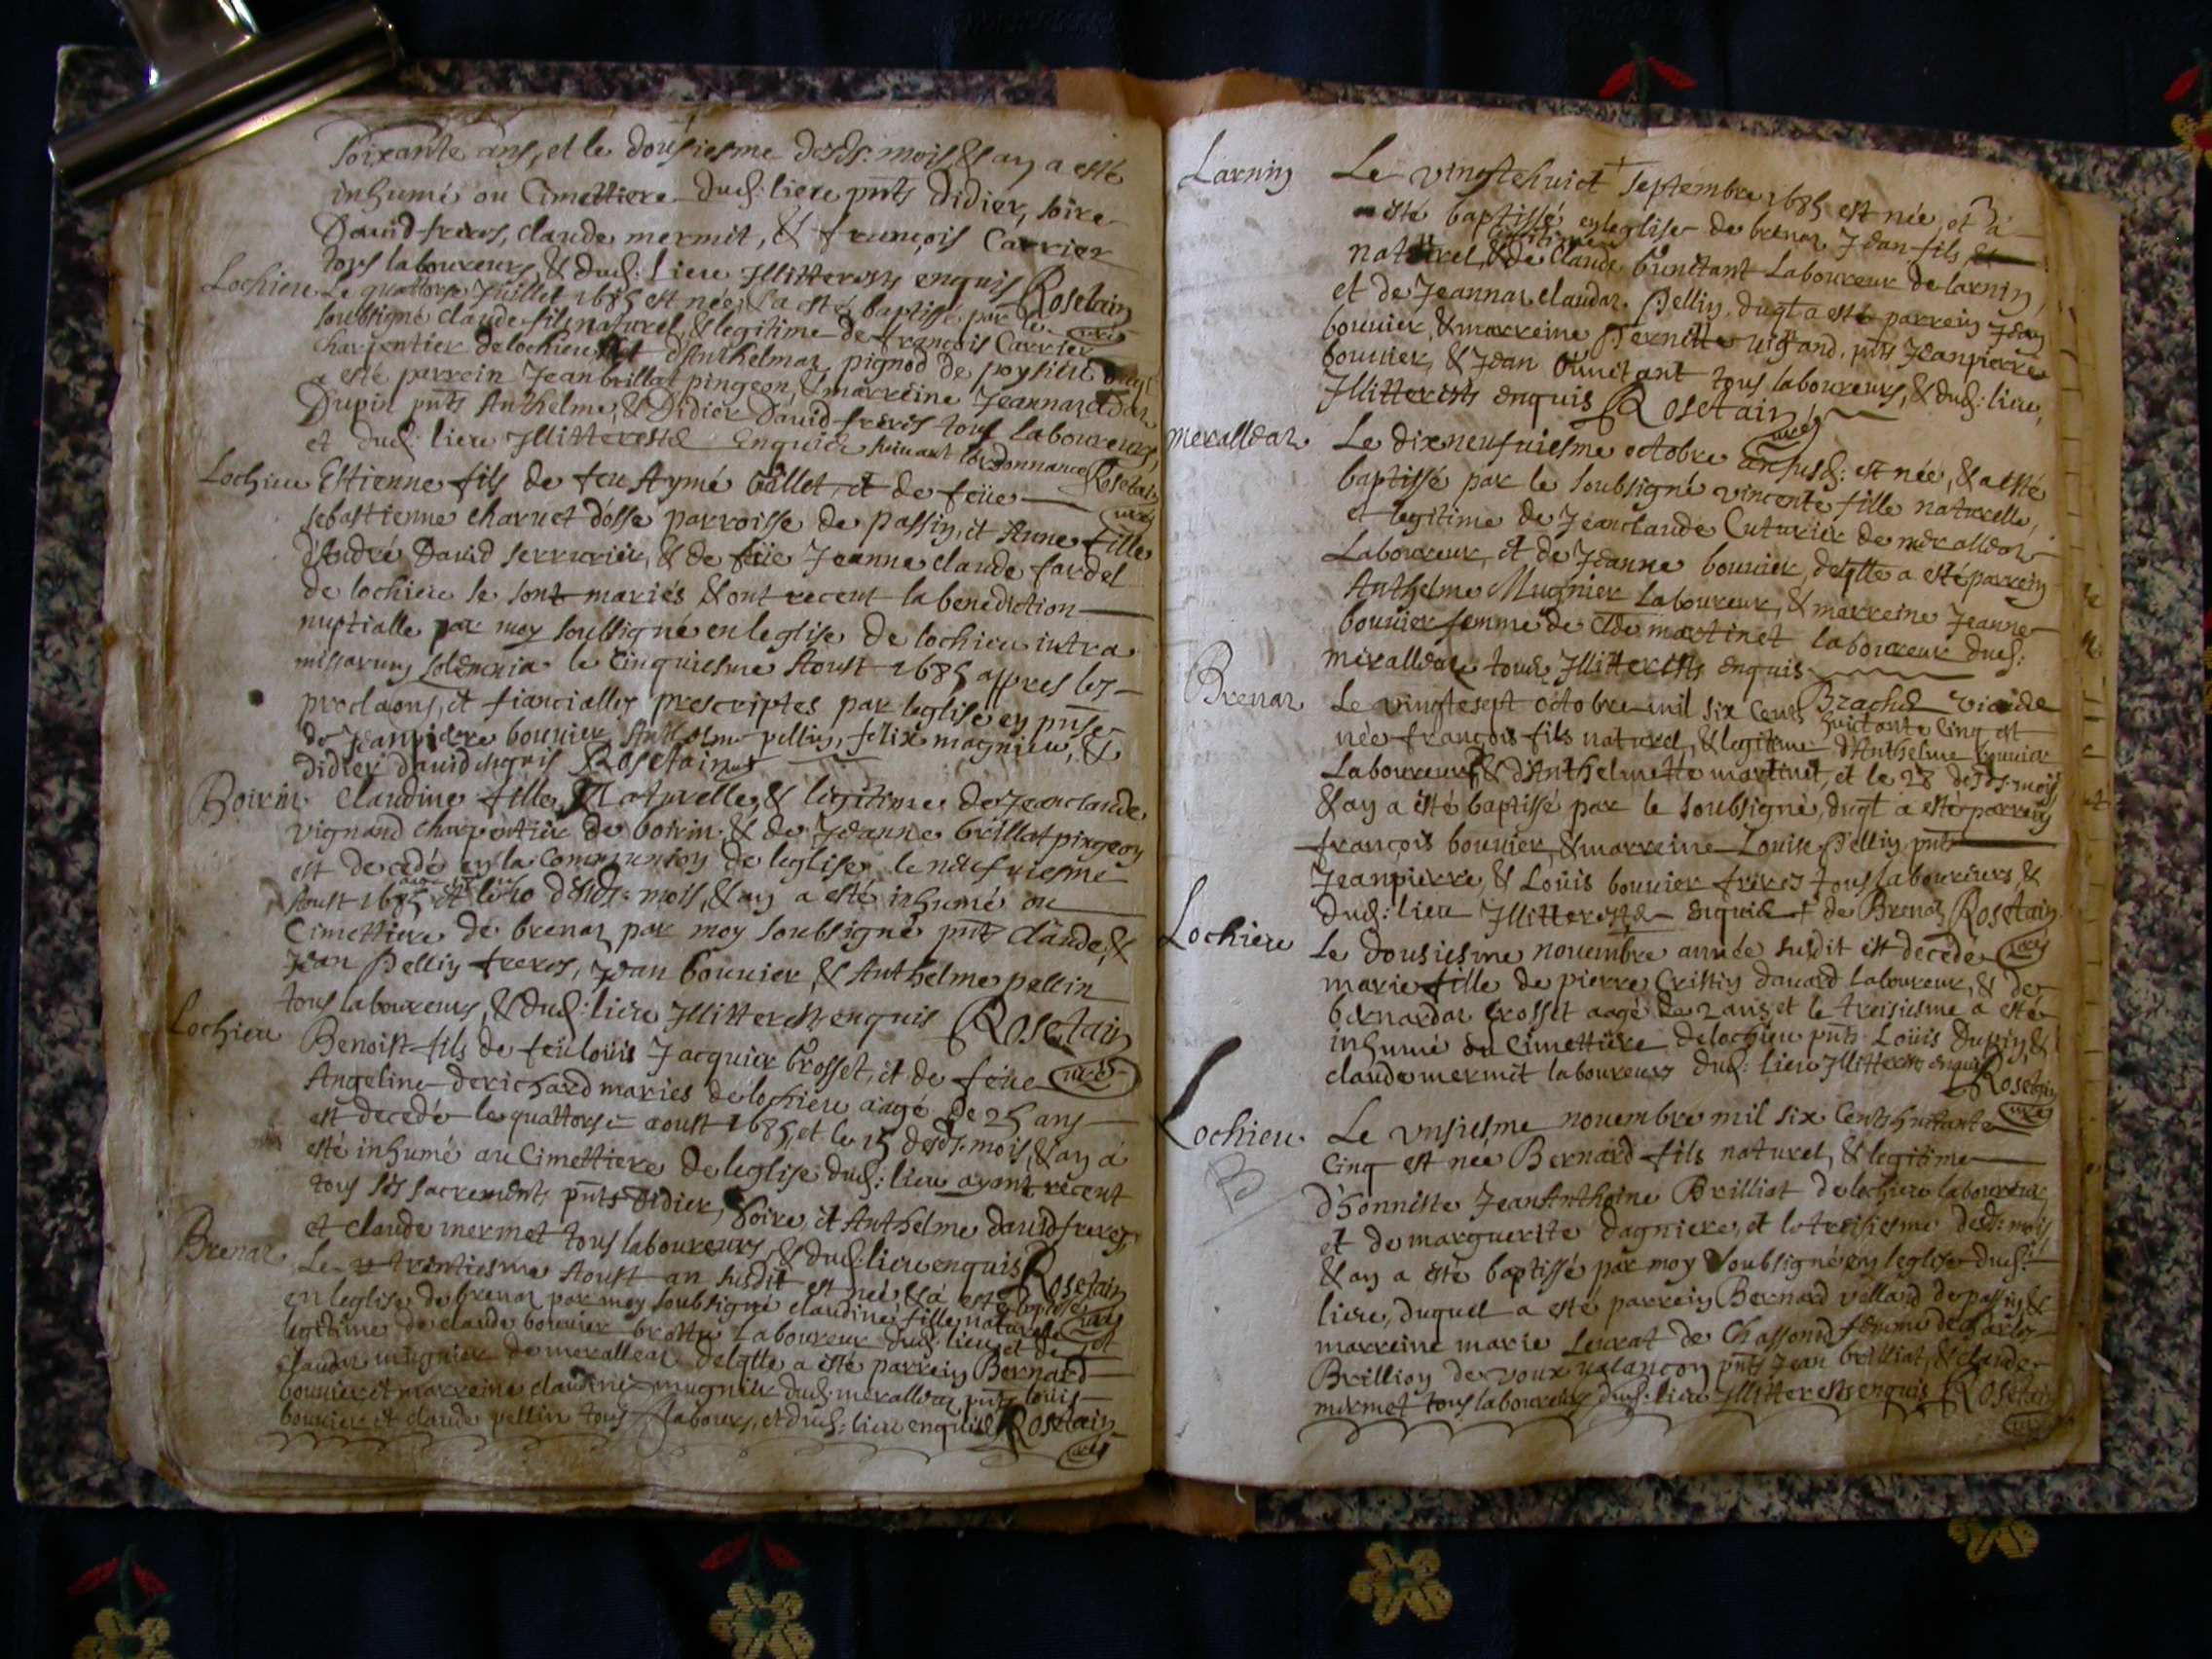 soixante ans, et le dousiesme desd: mois, & an a esté
inhumé ou Cimettiere dud: lieu pnts Didier, soire
David freres, claude mermit, & françois Carrier
tous laboureurs, & dud: lieu Illitteres enquis Rosetain
curé
Lochieu Le quattorse Juillet 1685 est née, & a esté baptissé par le
soubsigné claude fils naturel, & legitime de françois Carrier
charpentier de lochieu et d'Anthelmaz pignod de poysieu duql
a esté parrein Jean brillat pingeon, & marreine Jeannaz
Dupin pnts Anthelme, & Didier David freres tous laboureurs,
et dud: lieu Illitteres enquis suivant l'ordonnance Rosetain
curé
Lochieu Estienne fils de feu Aymé Gallet, et de feüe
sebastienne charvet d'ossé parroisse de passin, et Anne fille
d'André David serrurier, & de feüe Jeanne claude fardel
de lochieu se sont mariés & ont receu la benediction
nuptialle par moy soubsigné en leglise de lochieu intra
missarum solemnia le cinquiesme Aoust 1685 appres les
proclaons, et fiancialles prescriptes par leglise en pnse
de Jeanpierre bouvier, Anthelme pellin, felix magnieu, &
didier david enquis Rosetain curé
Boirin claudine fille Naturelle, & legitime de Jeanclaude
vignand charpentier de boirin & de Jeanne brillat pingeon
est decedé en la communion de leglise le neufviesme
Aoust 1685 et le 10 desd: mois, & an a esté inhumé ou
Cimettiere de brenaz par moy soubsigné pnts claude, &
Jean Pellin freres, Jean bouvier, & Anthelme pellin
tous laboureurs, & dud: lieu Illitteres enquis Rosetain
curé
Lochieu Benoist fils de feu loüis Jacquier brosset, et de feüe
Angeline derichard mariés de lochieu aagé de 25 ans
est decedé le quattorse aoust 1685, et le 15 desd: mois, & an a
esté inhumé au Cimettiere de leglise dud: lieu ayant receut
tous ses sacrements pnts Didier, soire, et Anthelme david freres,
et claude mermet tous laboureurs, & dud: lieu enquis Rosetain
curé
Brenaz Le trentiesme Aoust an susdit est née, & a esté baptisée
en leglise de brenaz par moy soubsigné claudine fille naturelle et
legitime de claude bouvier brottu Laboureur dud: lieu, et de
claudaz mugnier de meralleaz delqlle a esté parrein Bernard
bouvier et marreine claudine mugnier dud: meralleaz pnts louis
bouvier et claude pellin tous labours, et dud: lieu enquis Rosetain
curé
Larnin Le vingtehuict septembre 1685 est née, et a
esté baptissé en leglise de brenaz Jean fils
naturel, & legitime de Claude bunitant Laboureur de larnin,
et de Jeannaz claudaz Pellin duqt a esté parrein Jean
bouvier, & marreine Pernitte vignand. pnts Jeanpierre
bouvier, & Jean bunitant tous laboureurs, & dud: lieu,
Illitteres enquis Rosetain
curé
meralleaz Le dixneufviesme octobre an susd: est née, & a esté
baptissé par le soubsigné vincente fille naturelle,
et legitime de Jeanclaude Cuturier de meralleaz
Laboureur, et de Jeanne bouvier, delqlle a esté parrein
Anthelme Mugnier laboureur, & marreine Jeanne
bouvier femme de Clde martinet laboureur dud:
meralleaz tous Illitteres enquis
Brachet vicaire
Brenaz Le vingtesept octobre mil six cents huictante cinq est
née françois fils naturel, & legitime d'Anthelme bouvier
Laboureur, & d'Anthelmette martinet, et le 28 desd: mois
& an a esté baptissé par le soubsigné, duqt a esté parrein
françois bouvier, & marreine Louise Pellin pnts
Jeanpierre, & Loüis bouvier freres tous laboureurs, &
dud: lieu Illitteres enquis de Brenaz Rosetain
curé
Lochieu Le dousiesme novembre année susdit est decedé
marie fille de pierre Cristin davard Laboureur, & de
bernardaz brosset aagé de 2 ans, et le treisiesme a esté
inhumé ou Cimettiere de lochieu pnts Louis Dupin, &
claude mermit laboureurs dud: lieu Illitteres enquis Rosetain
curé
Lochieu Le unsiesme novembre mil six cents huitante
B
Cinq est née Bernard fils naturel, & legitime
d'honneste JeanAnthoine Brilliat de lochieu laboureur,
et de marguerite dagniere, et le treisiesme desd: mois,
& an a esté baptissé par moy soubsigné en leglise dud:
lieu, duquel a esté parrein Bernard velland de passin, &
marreine marie Leurat de Chassond femme de charles
Brillion de voux valançon pnts Jean brilliat, & claude
mermet tous laboureurs dud: lieu Illitteres enquis Rosetain
curé